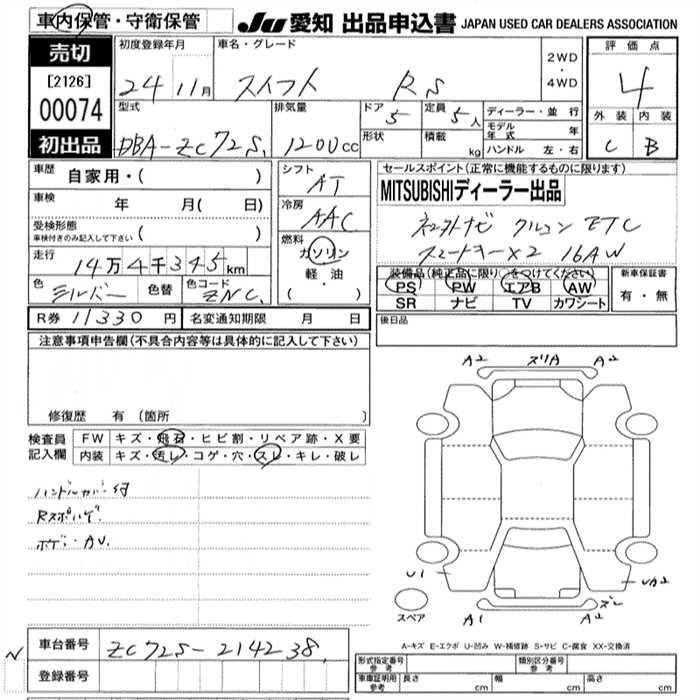 車内保管・守衛保管
JU 愛知 出品申込書 JAPAN USED CAR DEALERS ASSOCIATION
売切
[2126]
00074
初出品
初度登録年月
24 11月
車名・グレード
スイフト RS
2WD
・
4WD
評価点
4
外装 内装
C B
型式
DBA-ZC72S
排気量
1200cc
ドア
5
定員
5人
形状
積載
kg
ディーラー・並行
モデル年式 年
ハンドル 左・右
車歴 自家用・( )
車検 年 月(日)
受検形態
車検付きのみ記入して下さい ( )
走行 14万4千345km
色 シルバー 色替 色コード ZNC
シフト
AT
冷房
AAC
燃料
ガソリン
軽油
( ・ )
セールスポイント(正常に機能するものに限ります)
MITSUBISHIディーラー出品
ETC
スマートキーX2 16AW
装備品(純正品に限り○をつけてください)
PS PW エアB AW
SR ナビ TV カワシート
新車保証書
有・無
R券 11330円 名変通知期限 月 日
後日品
注意事項申告欄(不具合内容等は具体的に記入して下さい)
修復歴 有 (箇所 )
検査員記入欄
FW キズ・飛石・ヒビ割・リペア跡・X要
内装 キズ・汚レ・コゲ・穴・スレ・キレ・破レ
ハンドルカバー付
ボデー・AU
A2 ズリA A2
U1
UA2
スペア
A1 A2 ズレ
A-キズ E-エクボ U-凹み W-補修跡 S-サビ C-腐食 XX-交換済
車台番号 ZC72S-214238
登録番号
形式指定番号 参考
類別区分番号 参考
車庫証明用 参考 長さ cm 幅 cm 高さ cm